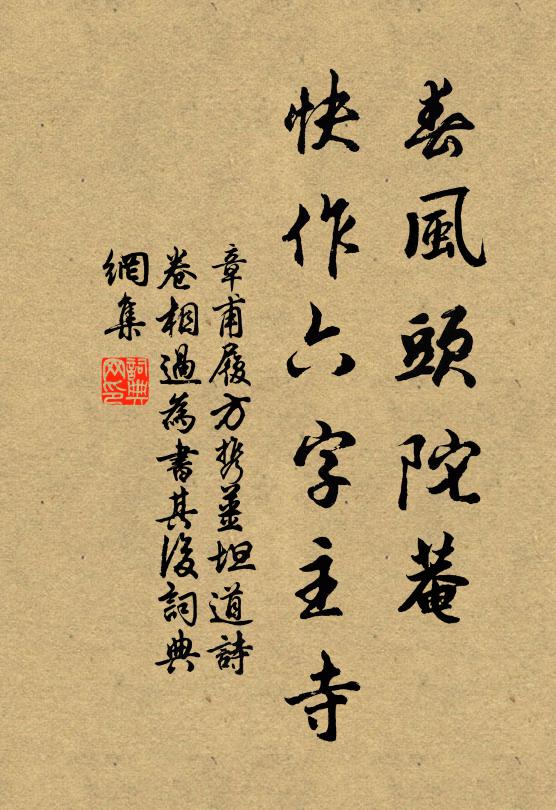 春風頭陀菴
快作六字主寺
章甫履方携姜坦道詩
卷相過為書其後詞典
網集
詞典
网印